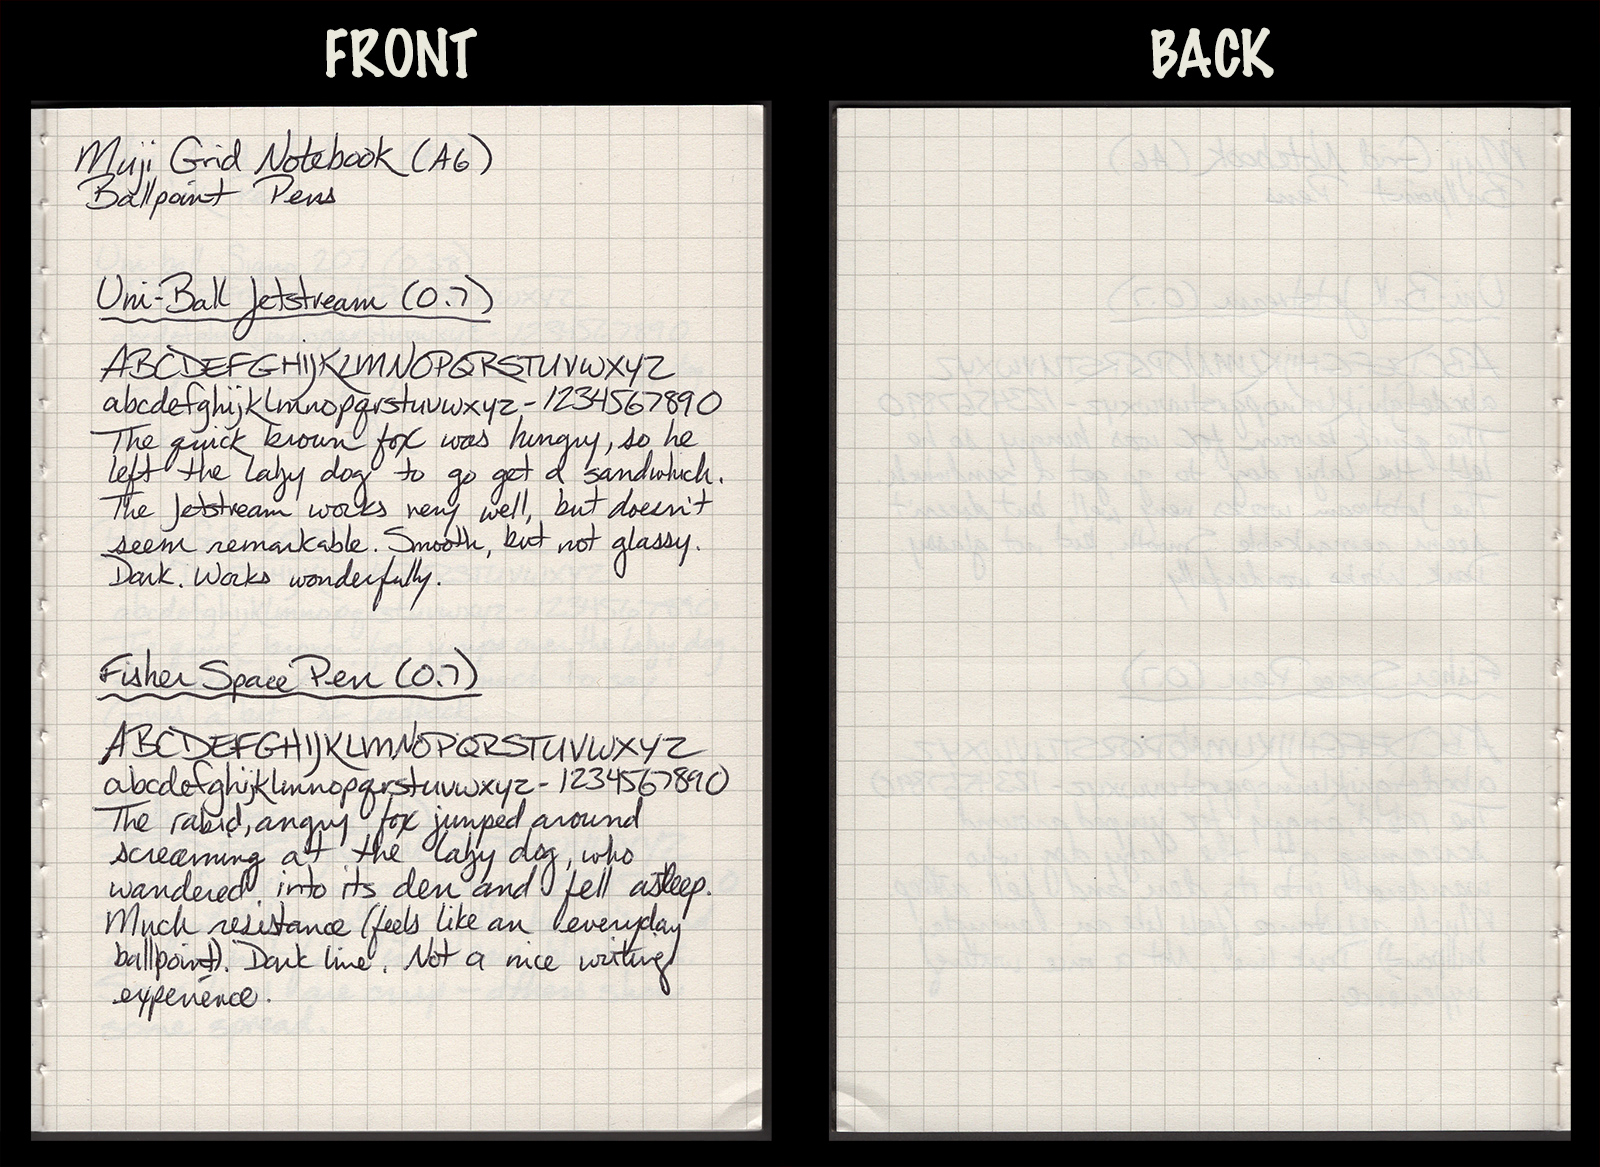 FRONT
Muji Grid Notebook (A6)
Ballpoint Pens
Uni-Ball Jetstream (0.7)
ABCDEFGHIJKLMNOPQRSTUVWXYZ
abcdefghijklmnopqrstuvwxyz - 1234567890
The quick brown fox was hungry, so he
left the lazy dog to go get a sandwhich.
The Jetstream works very well, but doesn't
seem remarkable. Smooth, but not glassy.
Dark. Works wonderfully.
Fisher Space Pen (0.7)
ABCDEFGHIJKLMNOPQRSTUVWXYZ
abcdefghijklmnopqrstuvwxyz - 1234567890
The rabid, angry fox jumped around
screaming at the lazy dog, who
wandered into its den and fell asleep.
Much resistance (feels like an everyday
ballpoint). Dark line. Not a nice writing
experience.
BACK